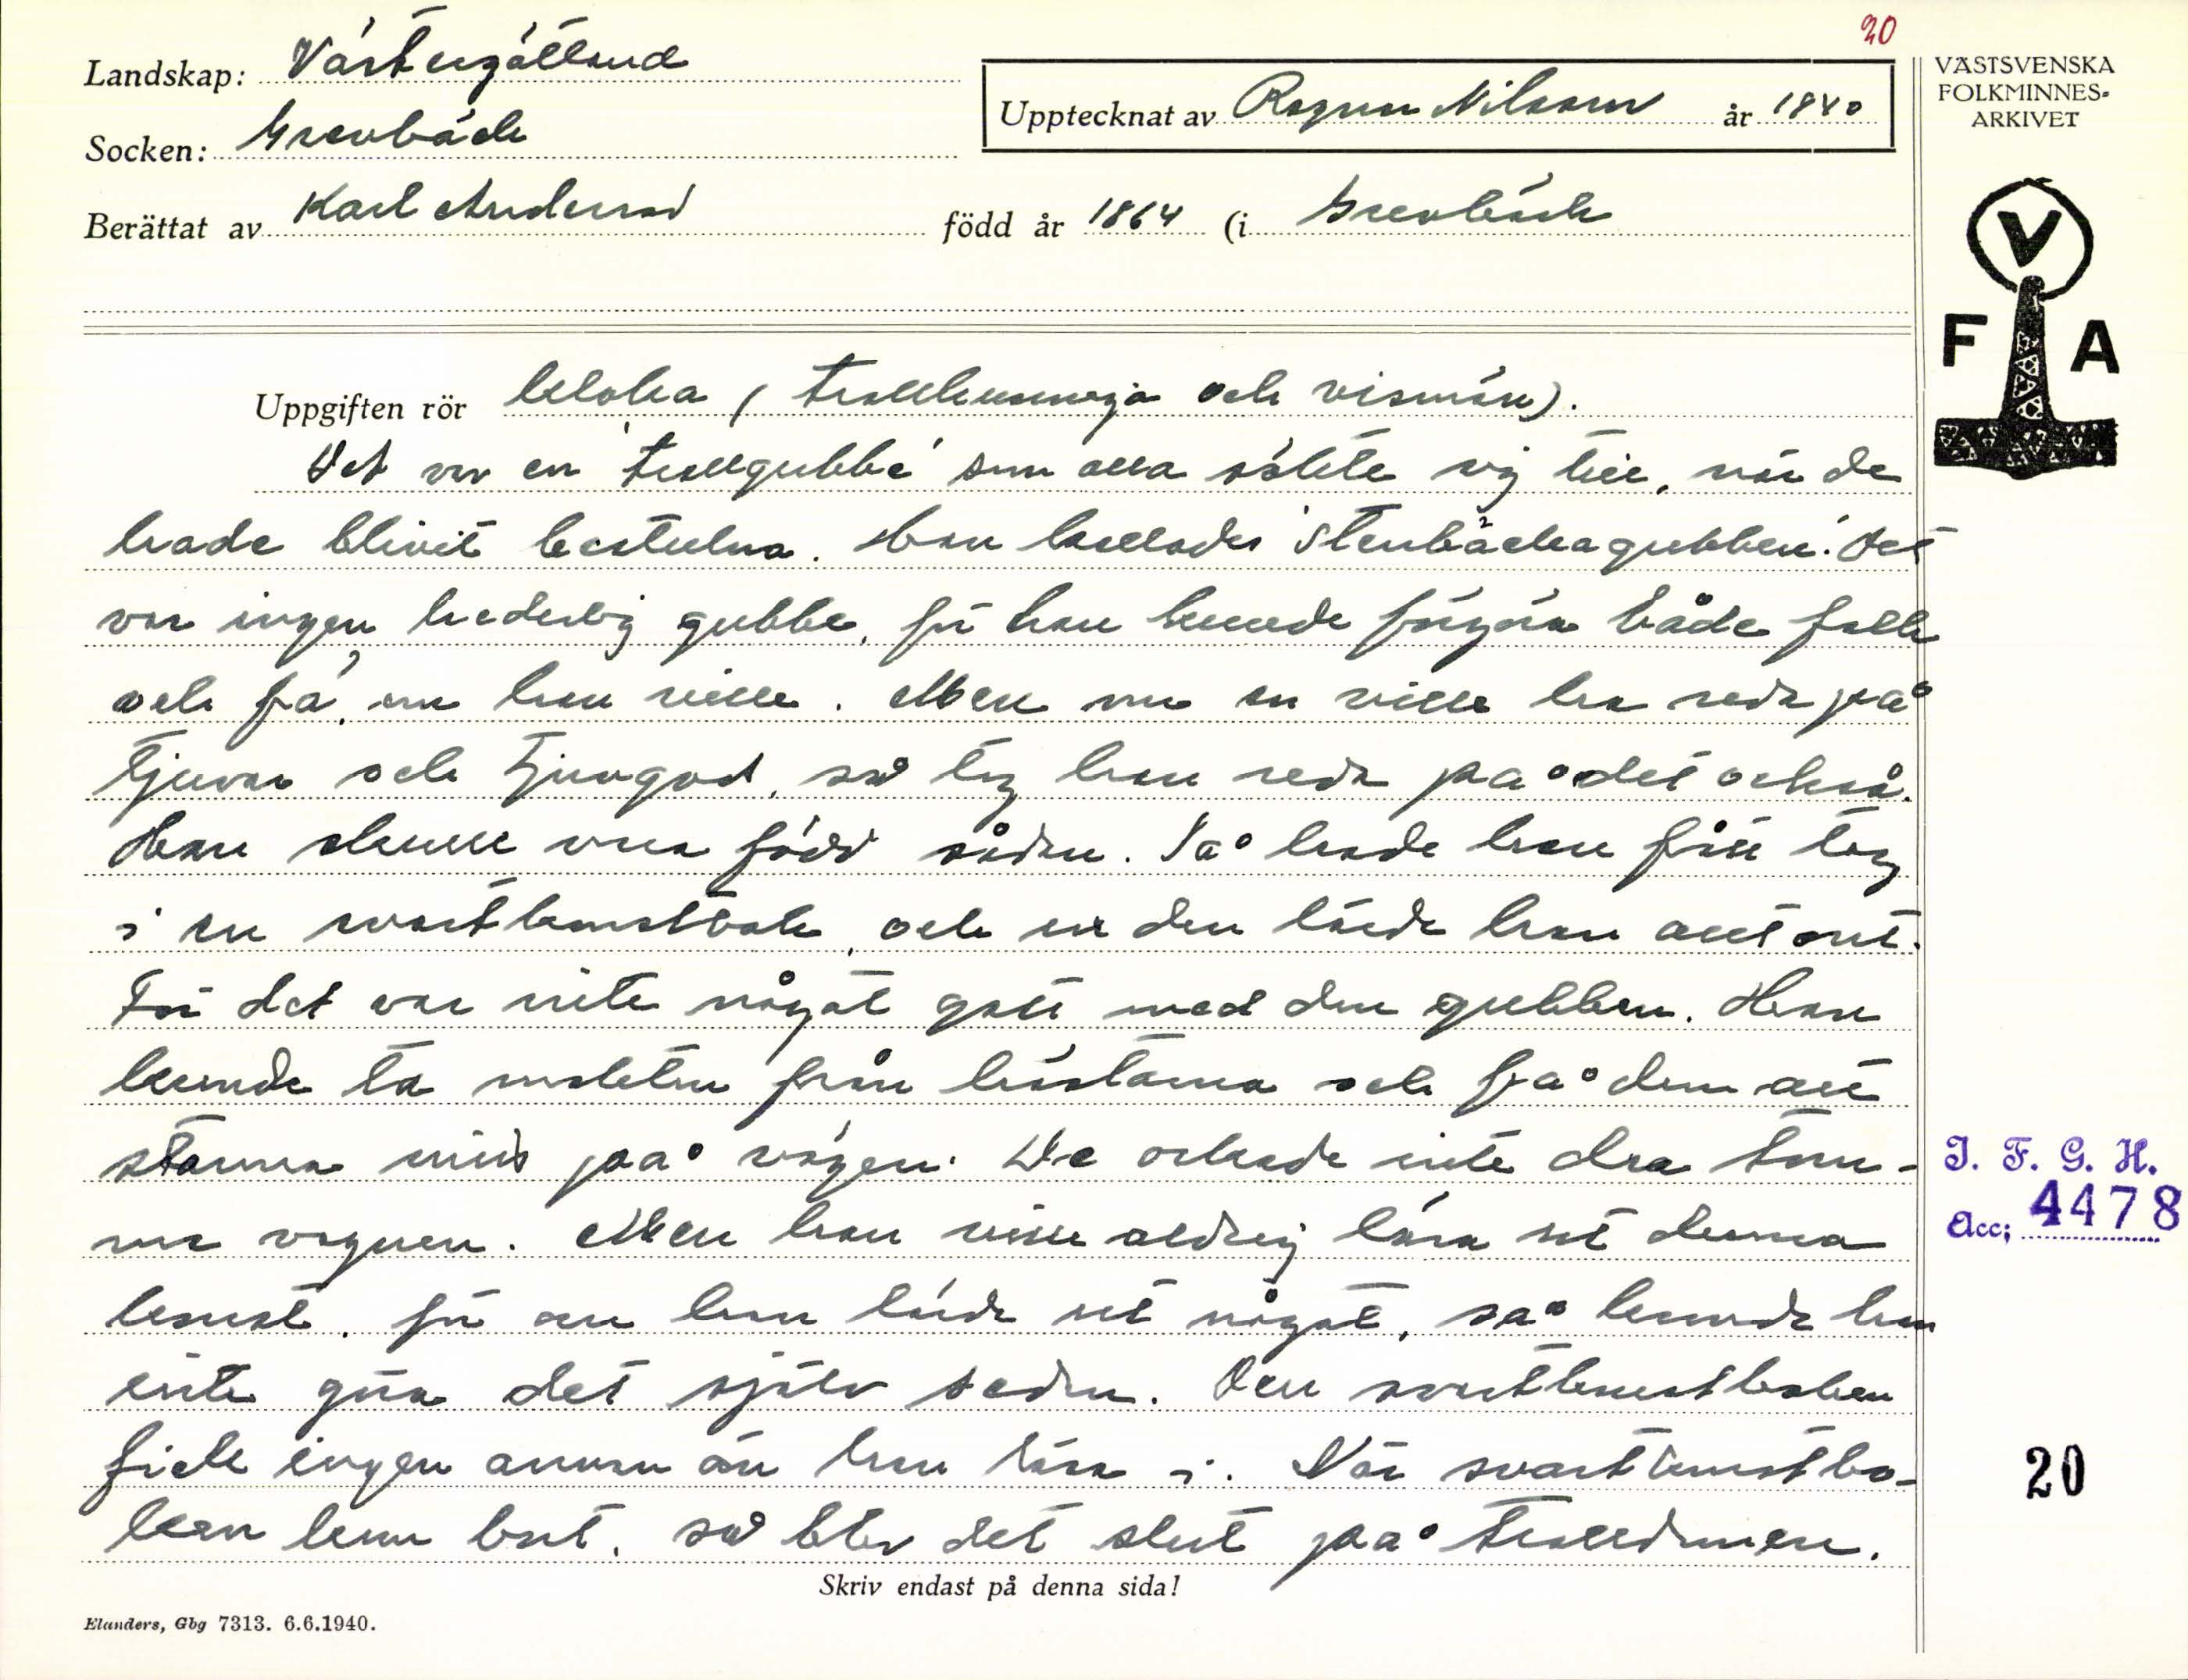 20
Landskap: Västergötland
Socken: Grevbäck
Berättat av Karl Anderson född år 1864 (i Grevbäck
Upptecknat av Ragnar Nilsson år 1940
VÄSTSVENSKA
FOLKMINNES-
ARKIVET
V
F A
Uppgiften rör kloka (trollkunniga och vismän).
Det var en "trollgubbe" som alla sökte sig till, när de
hade blivit bestulna. Han kallades "Stenbäckagubben". Det
var ingen hederlig gubbe, för han kunde förgöra både folk
och fä, om han ville. Men om en ville ha reda på
tjuvar och tjuvgod, så tog han reda på det också.
Han skulle vara född sådan. Så hade han fått tag
i en svartkonstbok, och ur den lärde han allt ont.
För det var inte något gott med den gubben. Han
kunde ta makten från hästarna och få dem att
stanna mitt på vägen. De orkade inte dra tom-
ma vagnen. Men han ville aldrig lära ut denna
konst, för om han lärde ut något, så kunde han
inte göra det själv sedan. Den svartkonstboken
fick ingen annan än han läsa i. När svartkonstbo-
ken kom bort, så blev det slut på trolldomen.
Skriv endast på denna sida!
Elanders, Gbg 7313. 6.6.1940.
I. F. G. H.
Acc; 4478
20